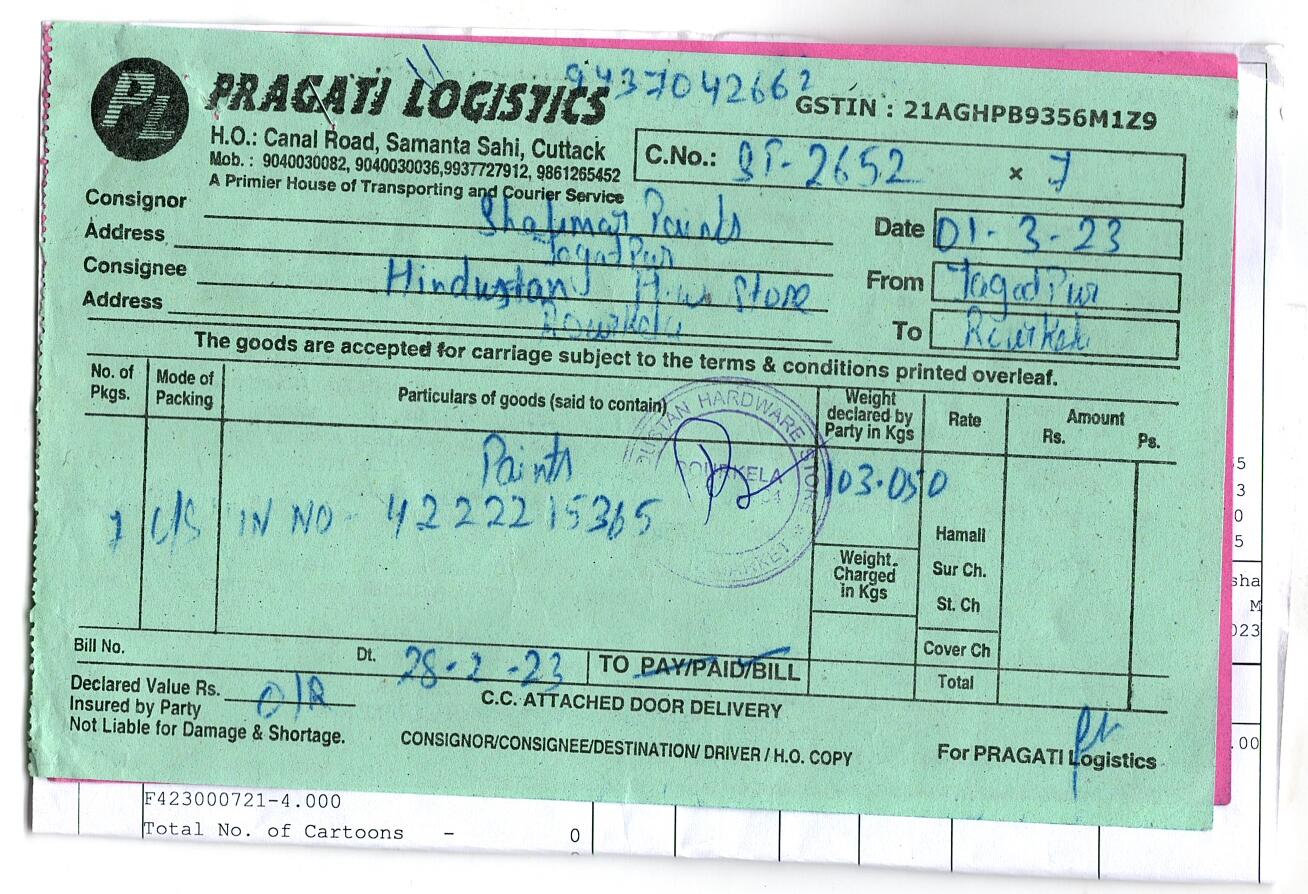 PL PRAGATI LOGISTICS
9437042662
GSTIN : 21AGHPB9356M1Z9
H.O.: Canal Road, Samanta Sahi, Cuttack
Mob. : 9040030082, 9040030036,9937727912, 9861265452
A Primier House of Transporting and Courier Service
C.No.: BT-2652 × 7
Consignor Shalimar Paints
Date 01-3-23
Address Jagatpur
From Jagatpur
Consignee Hindustan H.w Store
Address Rourkela
To Rourkela
The goods are accepted for carriage subject to the terms & conditions printed overleaf.
No. of Pkgs.
Mode of Packing
Particulars of goods (said to contain)
Weight declared by Party in Kgs
Rate
Amount
Rs. Ps.
HARDWARE STORE
ROURKELA
MARKET
Paints
103.050
7 C/S IN NO - 4222215365
Hamali
Weight. Charged in Kgs
Sur Ch.
St. Ch
Cover Ch
Total
Bill No. Dt. 28-2-23 TO PAY/PAID/BILL
Declared Value Rs. O/R
Insured by Party
Not Liable for Damage & Shortage.
C.C. ATTACHED DOOR DELIVERY
CONSIGNOR/CONSIGNEE/DESTINATION/ DRIVER / H.O. COPY
For PRAGATI Logistics
F423000721-4.000
Total No. of Cartoons - 0
5
3
0
5
sha
M
023
.00